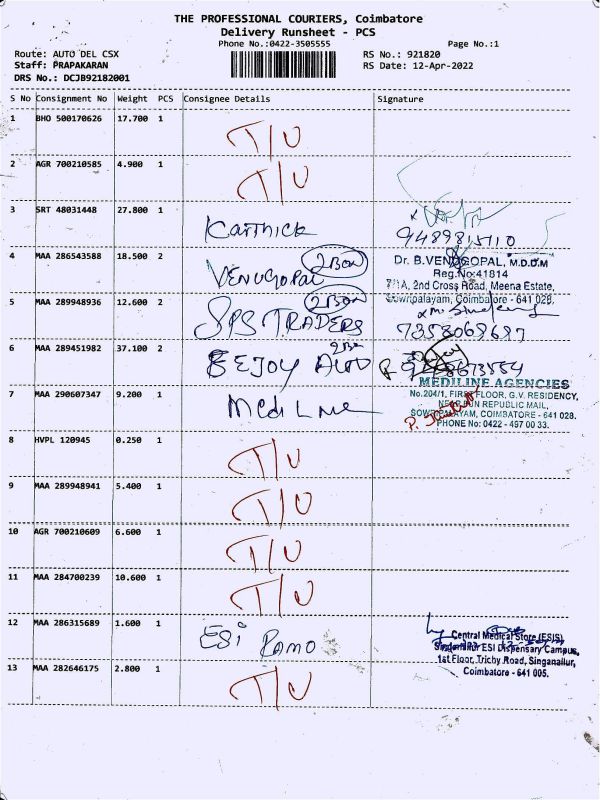 THE PROFESSIONAL COURIERS, Coimbatore
Delivery Runsheet - PCS
Phone No.:0422-3505555 Page No.:1
Route: AUTO DEL CSX RS No.: 921820
Staff: PRAPAKARAN RS Date: 12-Apr-2022
DRS No.: DCJB92182001
S No Consignment No Weight PCS Consignee Details Signature
1 BHO 500170626 17.700 1 T/U
2 AGR 700210585 4.900 1 T/U
3 SRT 48031448 27.800 1 Karthick
9489815110
4 MAA 286543588 18.500 2 VENUGOPAL 2 Box
Dr. B.VENUGOPAL, M.D.D.M
Reg.No:41814
2nd Cross Road, Meena Estate,
Sowripalayam, Coimbatore - 641 028.
5 MAA 289948936 12.600 2 SPS TRADERS 2 Box
7358068687
6 MAA 289451982 37.100 2 BEJOY AUTO 2 Box
7 MAA 290607347 9.200 1 Mediline
MEDILINE AGENCIES
No.204/1, FIRST FLOOR, G.V. RESIDENCY,
NEAR REPUBLIC MAIL,
SOWRIPALAYAM, COIMBATORE - 641 028.
PHONE No: 0422 - 497 00 33.
8 HVPL 120945 0.250 1 T/U
9 MAA 289948941 5.400 1 T/U
10 AGR 700210609 6.600 1 T/U
11 MAA 284700239 10.600 1 T/U
12 MAA 286315689 1.600 1 ESI Ramo
Central Medical Store (ESIS)
ESI Dispensary Campus,
1st Floor, Trichy Road, Singanallur,
Coimbatore - 641 005.
13 MAA 282646175 2.800 1 T/U